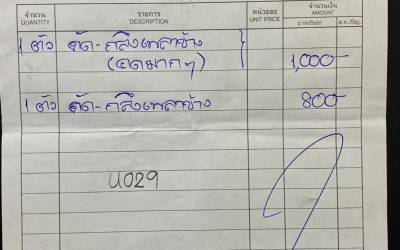 จำนวน QUANTITY รายการ DESCRIPTION หน่วยละ UNIT PRICE จำนวนเงิน AMOUNT
บาท/Baht ส.ต./Stg.
1 ตัว ตัด-กลึงเพลาข้าง 1,000-
(งอมากๆ)
1 ตัว ตัด-กลึงเพลาข้าง 800-
U029